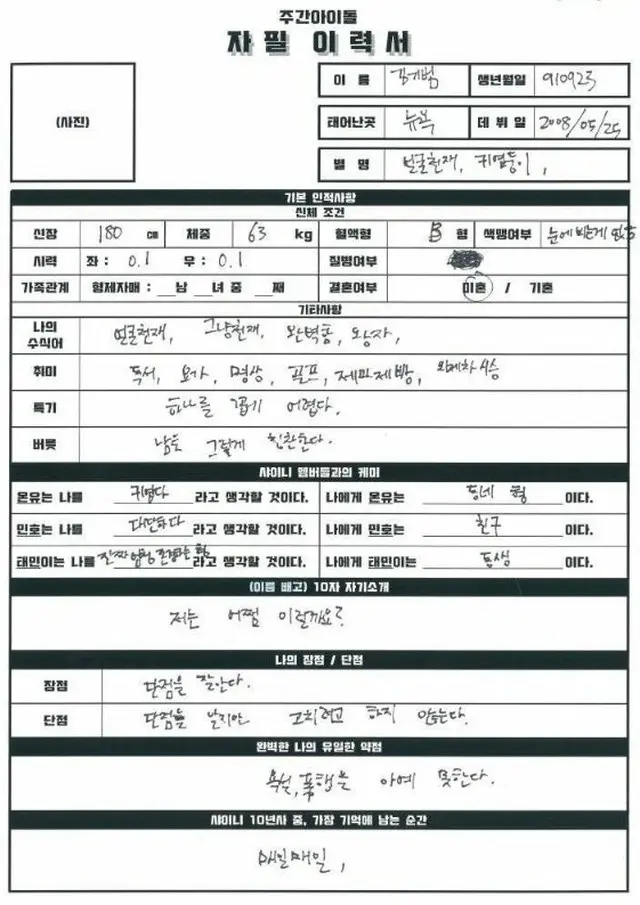 주간아이돌
자필 이력서
(사진)
이 름 김기범 생년월일 910923
태어난곳 뉴욕 데 뷔 일 2008/05/25
별 명 얼굴천재, 귀염둥이,
기본 인적사항
신체 조건
신장 180 cm 체중 63 kg 혈액형 B 형 색맹여부 눈에 뵈는게 없음
시력 좌 : 0.1 우 : 0.1 질병여부
가족관계 형제자매 : __남 __녀 중 __째 결혼여부 미혼 / 기혼
기타사항
나의 수식어 얼굴천재, 그냥천재, 완벽통, 왕자,
취미 독서, 요가, 명상, 골프, 제파제빵,
특기 하나를 꼽기 어렵다.
버릇 남도 그렇게 칭찬한다.
샤이니 멤버들과의 케미
온유는 나를 귀엽다 라고 생각할 것이다. 나에게 온유는 동네 형 이다.
민호는 나를 대단하다 라고 생각할 것이다. 나에게 민호는 친구 이다.
태민이는 나를 진짜 엄청 존경하는 형 라고 생각할 것이다. 나에게 태민이는 동생 이다.
(이름 빼고) 10자 자기소개
저는 어쩜 이럴까요?
나의 장점 / 단점
장점 단점을 잘안다.
단점 단점을 알지만 고치려고 하지 않는다.
완벽한 나의 유일한 약점
욕설, 폭행을 아예 못한다.
샤이니 10년사 중, 가장 기억에 남는 순간
매일매일,